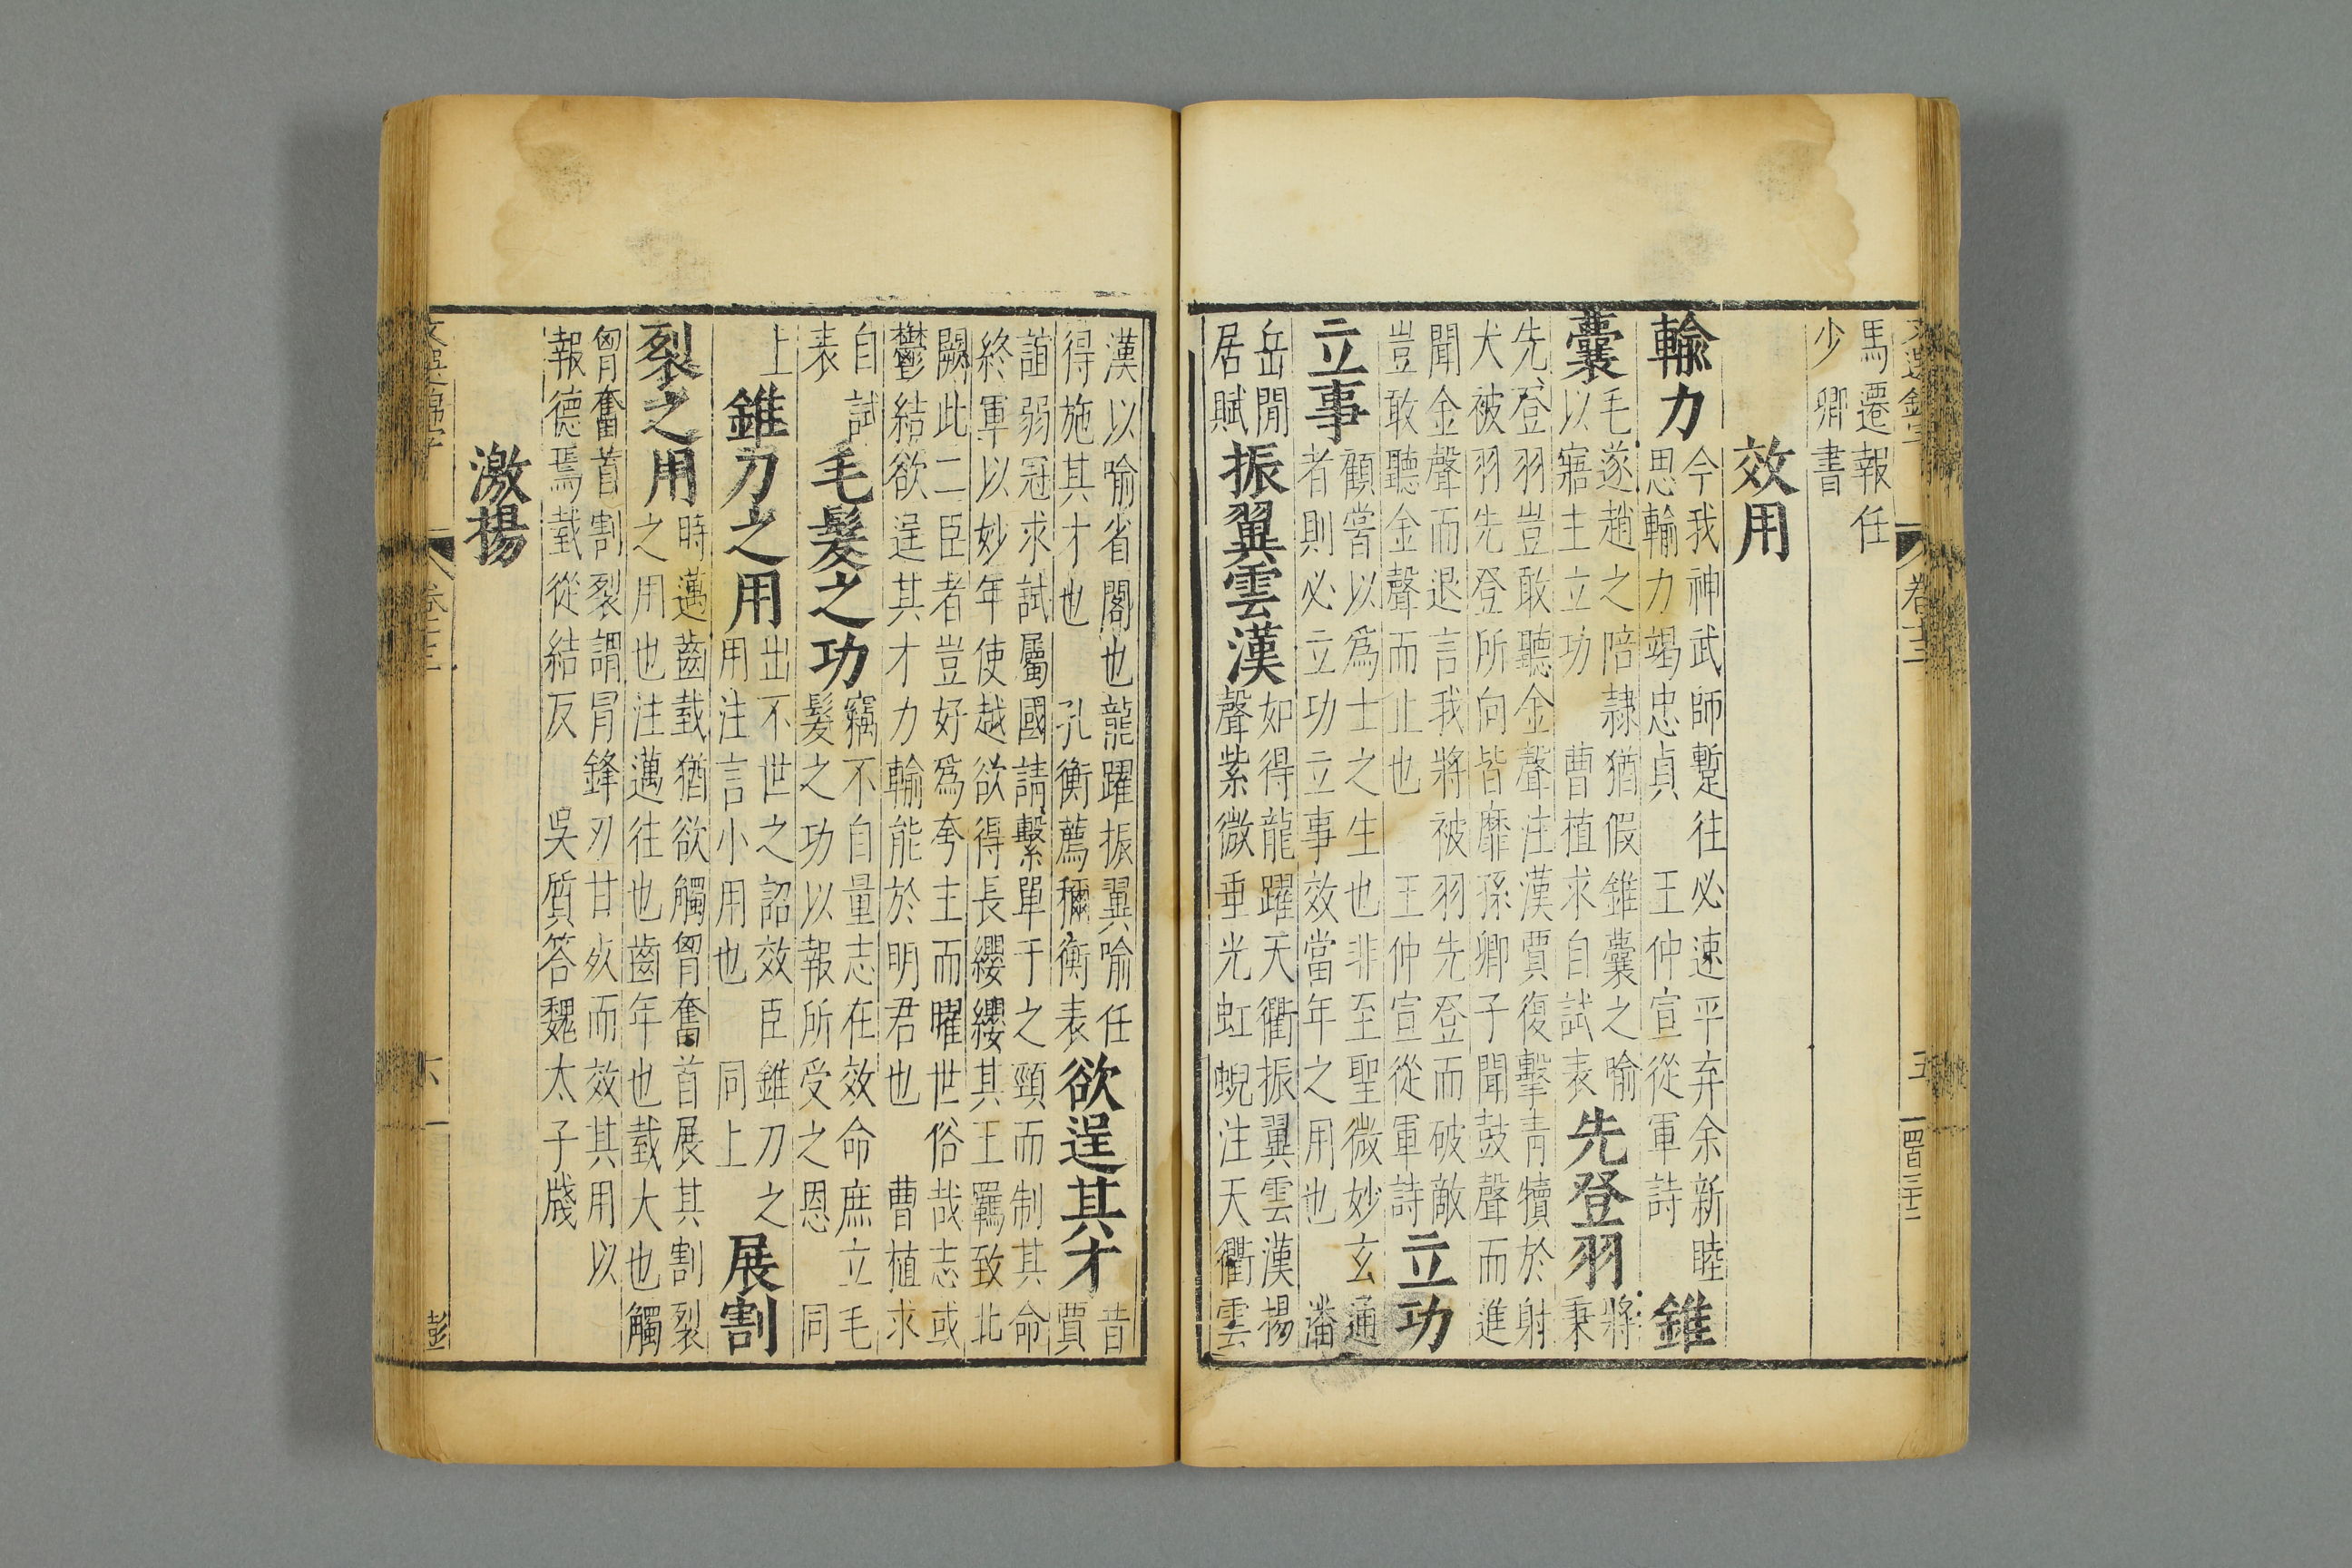 馬遷報任
少卿書
效用
輸力
今我神武師蹔往必速平弃余新睦
思輸力竭忠貞 王仲宣從軍詩
錐
囊
毛遂趙之陪隷猶假錐囊之喻
以寤主立功 曹植求自試表
先登羽
將
秉
先登羽豈敢聽金聲注漢賈復擊青犢於射
犬被羽先登所向皆靡孫卿子聞鼓聲而進
聞金聲而退言我將被羽先登而破敵
豈敢聽金聲而止也 王仲宣從軍詩
立功
立事
顧嘗以爲士之生也非至聖微妙玄通
者則必立功立事效當年之用也 潘
岳閒
居賦
振翼雲漢
如得龍躍天衢振翼雲漢揚
聲紫微垂光虹蜺注天衢雲
漢以喻省閣也龍躍振翼喻任
得施其才也 孔衡薦禰衡表
欲逞其才
昔
賈
誼弱冠求試屬國請繫單于之頸而制其命
終軍以妙年使越欲得長纓纓其王羈致北
闕此二臣者豈好爲夸主而曜世俗哉志或
鬱結欲逞其才力輸能於明君也 曹植求
自試
表
毛髮之功
竊不自量志在效命庶立毛
髮之功以報所受之恩 同
上
錐刀之用
出不世之詔效臣錐刀之
用注言小用也 同上
展割
裂之用
時邁齒臷猶欲觸匈奮首展其割裂
之用也注邁往也齒年也臷大也觸
匈奮首割裂謂冐鋒刃甘死而效其用以
報德焉臷從結反 吳質答魏太子牋
激揚
卷十三
五
四百三十三
卷十三
六
彭